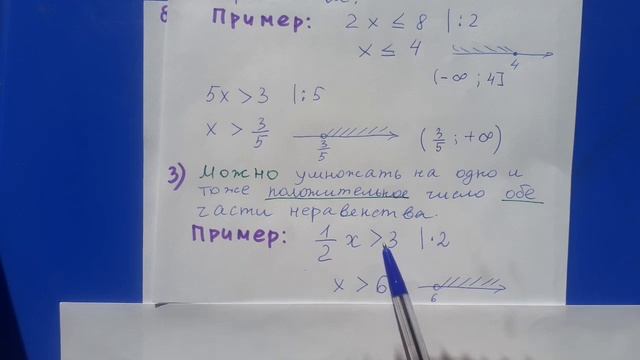 Пример: 2x ≤ 8 |:2
x ≤ 4
4
(-∞; 4]
5x > 3 |:5
x > 3/5
3/5
(3/5; +∞)
3) Можно умножать на одно и
тоже положительное число обе
части неравенства.
Пример: 1/2 x > 3 |·2
x > 6
6